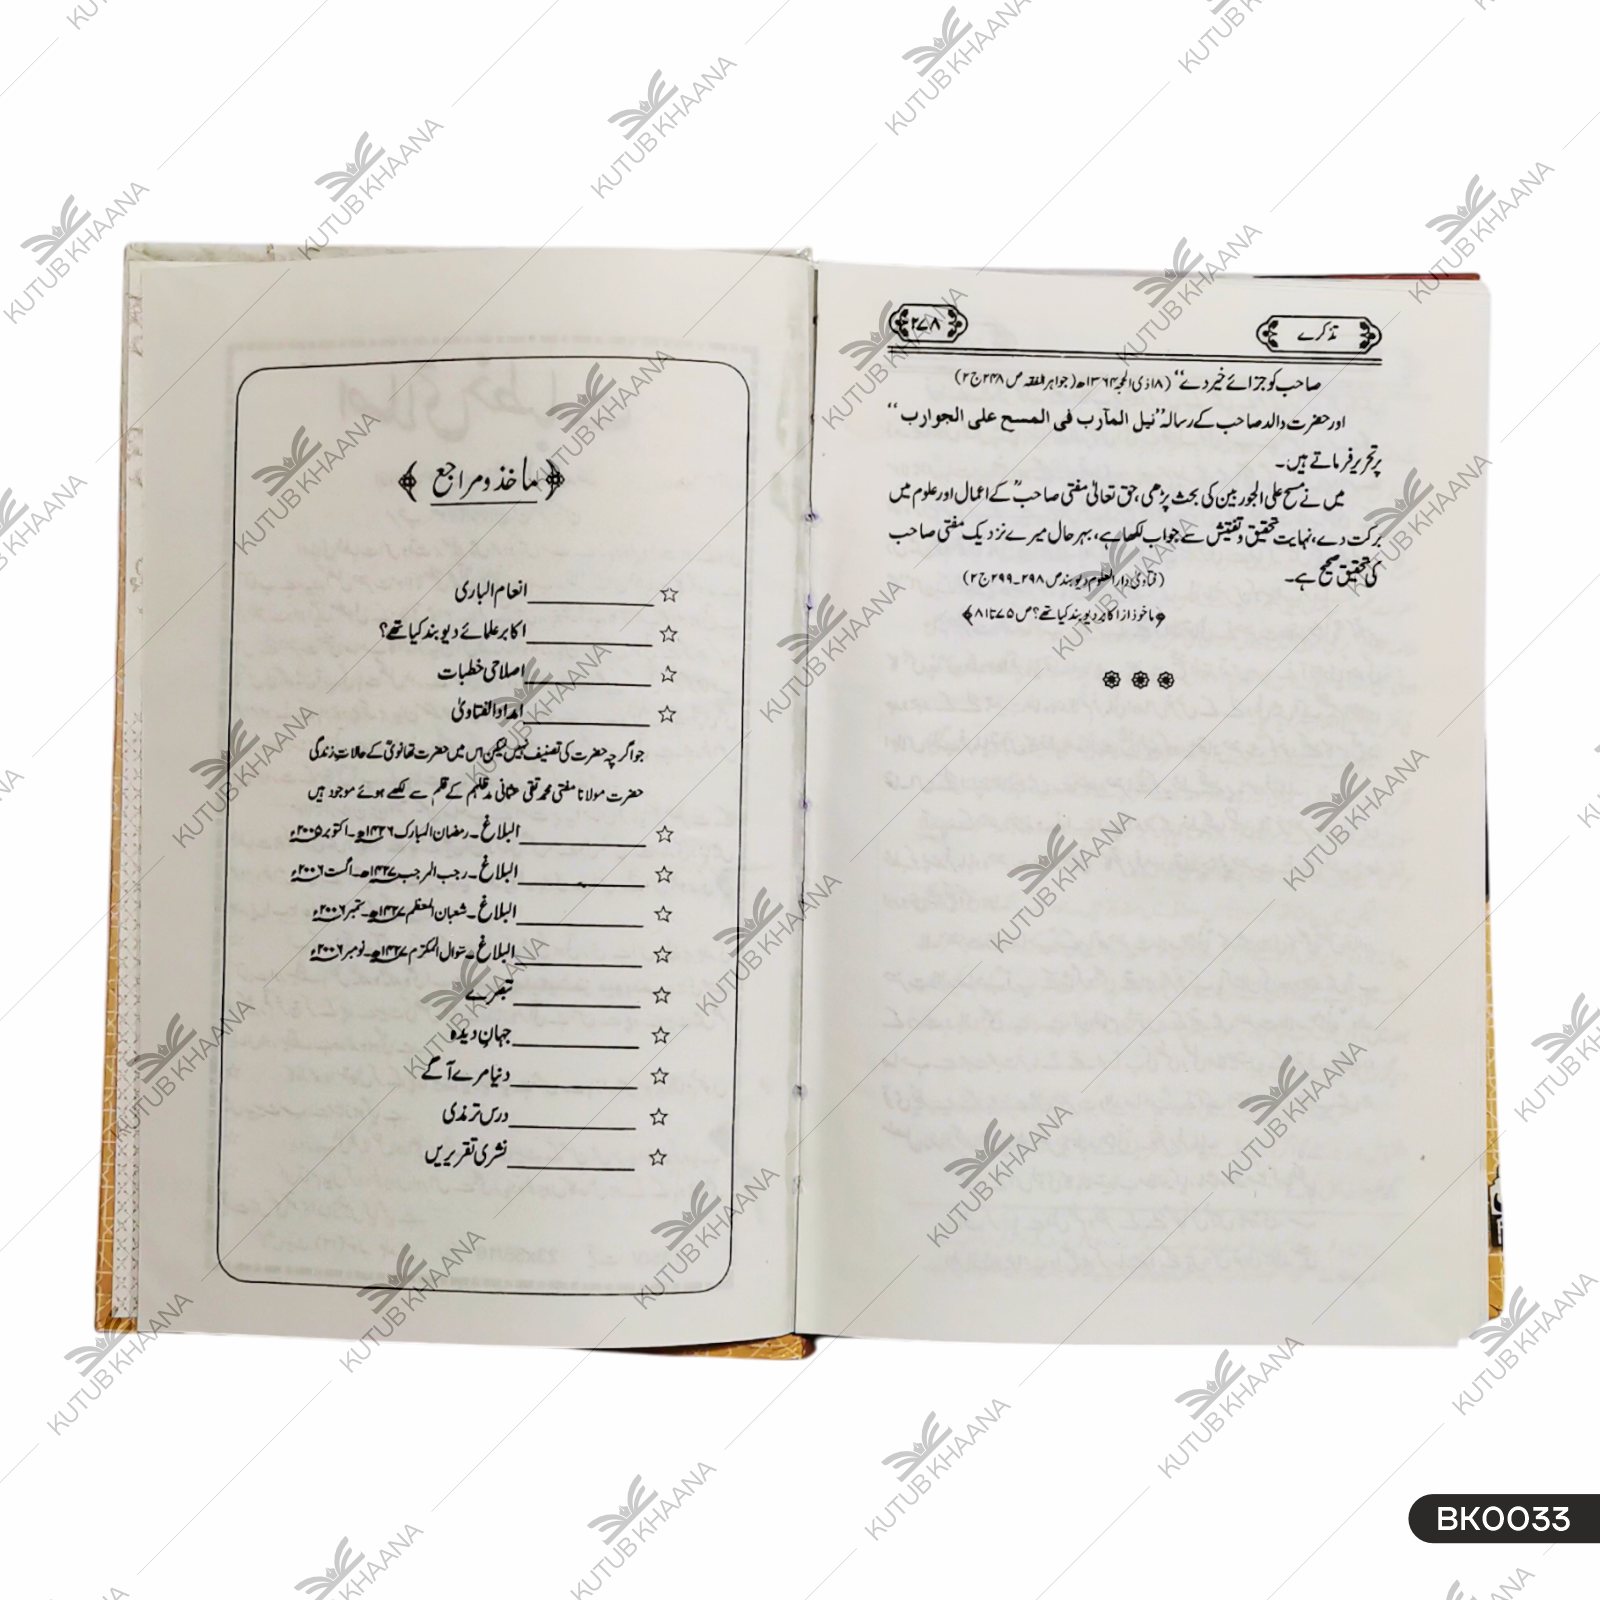 تذکرے
۲۷۸
صاحب کو جزائے خیر دے“ (۱۸ ذی الحجہ ۱۳۶۴ھ (جواہر الفقہ ص ۲۴۸ ج ۲)
اور حضرت والد صاحب کے رسالہ ”نیل المآرب فی المسح علی الجوارب“
پر تحریر فرماتے ہیں۔
میں نے مسح علی الجوربین کی بحث پڑھی، حق تعالیٰ مفتی صاحبؒ کے اعمال اور علوم میں
برکت دے، نہایت تحقیق وتفتیش سے جواب لکھا ہے، بہر حال میرے نزدیک مفتی صاحب
کی تحقیق صحیح ہے۔
(فتاویٰ دار العلوم دیوبند ص ۲۹۸۔۲۹۹ ج ۲)
﴿ماخوذ از اکابر دیوبند کیا تھے؟ ص ۷۵ تا ۸۱﴾
﴿ماخذ و مراجع﴾
☆ انعام الباری
☆ اکابر علمائے دیوبند کیا تھے؟
☆ اصلاحی خطبات
☆ امداد الفتاویٰ
جو اگرچہ حضرت کی تصنیف نہیں لیکن اس میں حضرت تھانویؒ کے حالاتِ زندگی
حضرت مولانا مفتی محمد تقی عثمانی مدظلہم کے قلم سے لکھے ہوئے موجود ہیں
☆ البلاغ۔رمضان المبارک ۱۴۲۶ھ۔اکتوبر ۲۰۰۵ء
☆ البلاغ۔رجب المرجب ۱۴۲۷ھ۔اگست ۲۰۰۶ء
☆ البلاغ۔شعبان المعظم ۱۴۲۷ھ۔ستمبر ۲۰۰۶ء
☆ البلاغ۔شوال المکرم ۱۴۲۷ھ۔نومبر ۲۰۰۶ء
☆ تبصرے
☆ جہانِ دیدہ
☆ دنیا مرے آگے
☆ درس ترمذی
☆ نشری تقریریں
KUTUB KHAANA
BK0033